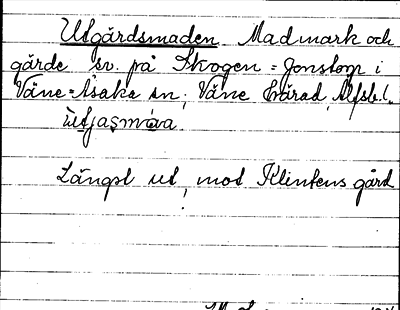 Utgårdsmaden. Madmark och
gärde sv. på Skogen = Jonstorp i
Väne = Åsaka sn; Väne härad, Älfsb. l.
ùtjasmáa.
Längst ut, mod Klintens gård